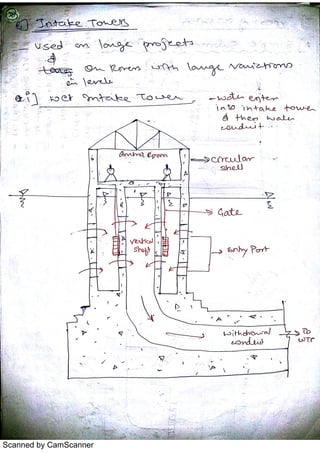 6] Intake Towers
- Used on large projects
&
on Rivers with large variations
in levels
i] Wet Intake Tower
- water enter
into intake tower
& then water
conduit.
Control Room
Circular
shell
Gate
vertical
shaft
Entry Port
withdrawal
conduit
To
WTP
Scanned by CamScanner